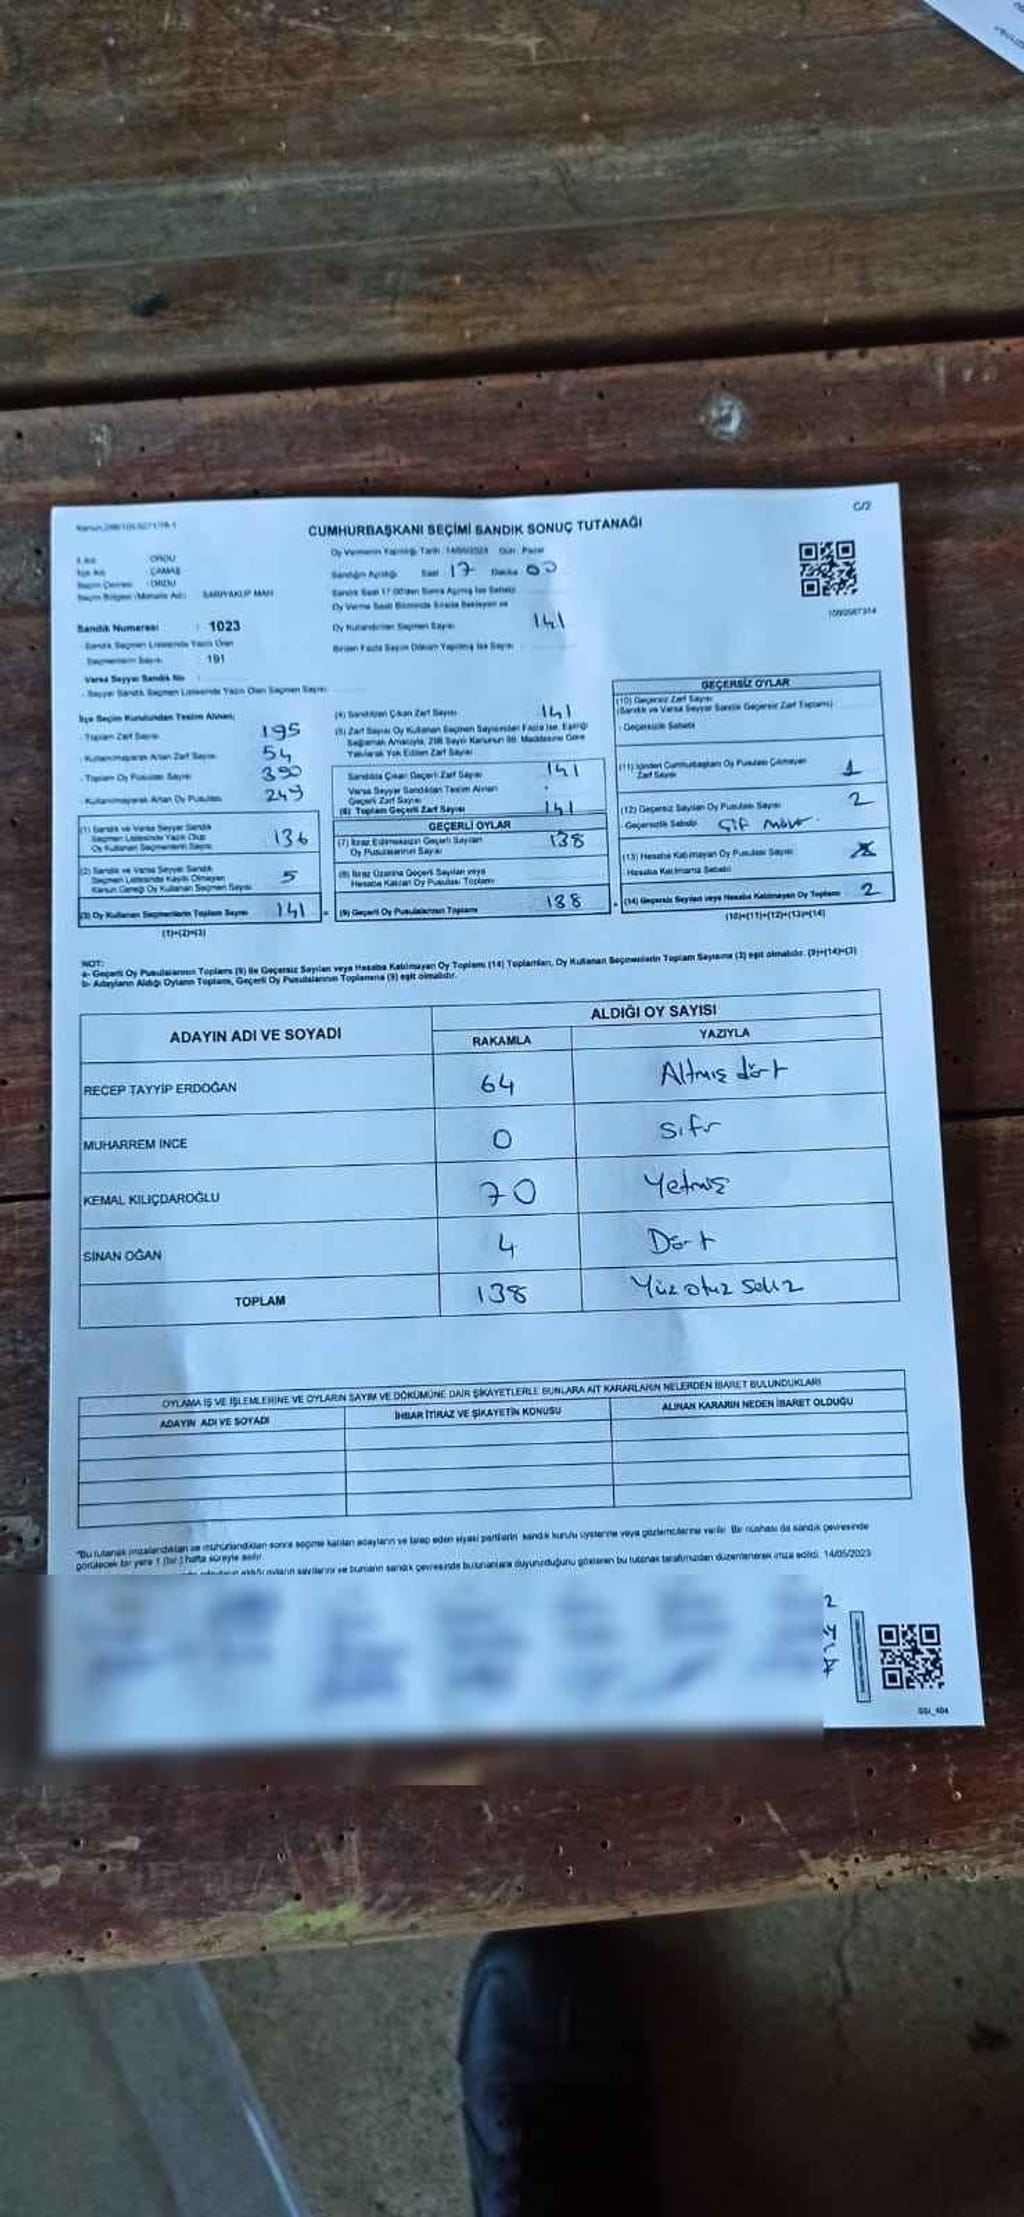 C/2
CUMHURBAŞKANI SEÇİMİ SANDIK SONUÇ TUTANAĞI
Oy Vermenin Yapıldığı Tarih: 14/05/2023 Gün: Pazar
İl Adı : ORDU
İlçe Adı : ÇAMAŞ
Seçim Çevresi : ORDU
SARIYAKUP MAH
Sandığın Açıldığı Saat 17 Dakika 00
Sandık Saat 17:00'den Sonra Açılmış İse Sebebi
Oy Verme Saati Bitiminde Sırada Bekleyen ve
Oy Kullandırılan Seçmen Sayısı 141
Birden Fazla Sayım Döküm Yapılmış İse Sayısı
Sandık Numarası : 1023
Sandık Seçmen Listesinde Yazılı Olan
Seçmenlerin Sayısı : 191
Varsa Seyyar Sandık No
- Seyyar Sandık Seçmen Listesinde Yazılı Olan Seçmen Sayısı
İlçe Seçim Kurulundan Teslim Alınan;
- Toplam Zarf Sayısı 195
- Kullanılmayarak Artan Zarf Sayısı 54
- Toplam Oy Pusulası Sayısı 390
- Kullanılmayarak Artan Oy Pusulası 249
(1) Sandık ve Varsa Seyyar Sandık
Seçmen Listesinde Yazılı Olup
Oy Kullanan Seçmenlerin Sayısı 136
(2) Sandık ve Varsa Seyyar Sandık
Seçmen Listesinde Kayıtlı Olmayan
Kanun Gereği Oy Kullanan Seçmen Sayısı 5
(3) Oy Kullanan Seçmenlerin Toplam Sayısı 141
(1)+(2)=(3)
(4) Sandıktan Çıkan Zarf Sayısı 141
(5) Zarf Sayısı Oy Kullanan Seçmen Sayısından Fazla İse, Eşitliği
Sağlamak Amacıyla, 298 Sayılı Kanunun 98. Maddesine Göre
Yakılarak Yok Edilen Zarf Sayısı
Sandıkta Çıkan Geçerli Zarf Sayısı 141
Varsa Seyyar Sandıktan Teslim Alınan
Geçerli Zarf Sayısı
(6) Toplam Geçerli Zarf Sayısı 141
GEÇERLİ OYLAR
(7) İtiraz Edilmeksizin Geçerli Sayılan
Oy Pusulalarının Sayısı 138
(8) İtiraz Üzerine Geçerli Sayılan veya
Hesaba Katılan Oy Pusulası Toplamı
= (9) Geçerli Oy Pusulalarının Toplamı 138
GEÇERSİZ OYLAR
(10) Geçersiz Zarf Sayısı
(Sandık ve Varsa Seyyar Sandık Geçersiz Zarf Toplamı)
- Geçersizlik Sebebi
(11) İçinden Cumhurbaşkanı Oy Pusulası Çıkmayan
Zarf Sayısı 1
(12) Geçersiz Sayılan Oy Pusulası Sayısı 2
- Geçersizlik Sebebi Çif
(13) Hesaba Katılmayan Oy Pusulası Sayısı
- Hesaba Katılmama Sebebi
+ (14) Geçersiz Sayılan veya Hesaba Katılmayan Oy Toplamı 2
(10)+(11)+(12)+(13)=(14)
NOT:
a- Geçerli Oy Pusulalarının Toplamı (9) ile Geçersiz Sayılan veya Hesaba Katılmayan Oy Toplamı (14) Toplamları, Oy Kullanan Seçmenlerin Toplam Sayısına (3) eşit olmalıdır. (9)+(14)=(3)
b- Adayların Aldığı Oyların Toplamı, Geçerli Oy Pusulalarının Toplamına (9) eşit olmalıdır.
ADAYIN ADI VE SOYADI
ALDIĞI OY SAYISI
RAKAMLA YAZIYLA
RECEP TAYYİP ERDOĞAN 64 Altmış dört
MUHARREM İNCE 0 Sıfır
KEMAL KILIÇDAROĞLU 70 Yetmiş
SİNAN OĞAN 4 Dört
TOPLAM 138 Yüz otuz sekiz
OYLAMA İŞ VE İŞLEMLERİNE VE OYLARIN SAYIM VE DÖKÜMÜNE DAİR ŞİKAYETLERLE BUNLARA AİT KARARLARIN NELERDEN İBARET BULUNDUKLARI
ADAYIN ADI VE SOYADI İHBAR İTİRAZ VE ŞİKAYETİN KONUSU ALINAN KARARIN NEDEN İBARET OLDUĞU
"Bu tutanak imzalandıktan ve mühürlendikten sonra seçime katılan adayların ve talep eden siyasi partilerin sandık kurulu üyelerine veya gözlemcilerine verilir. Bir nüshası da sandık çevresinde
görülecek bir yere 1 (bir) hafta süreyle asılır.
aldığı oyların sayılarını ve bunların sandık çevresinde bulunanlara duyurulduğunu gösteren bu tutanak tarafımızdan düzenlenerek imza edildi. 14/05/2023